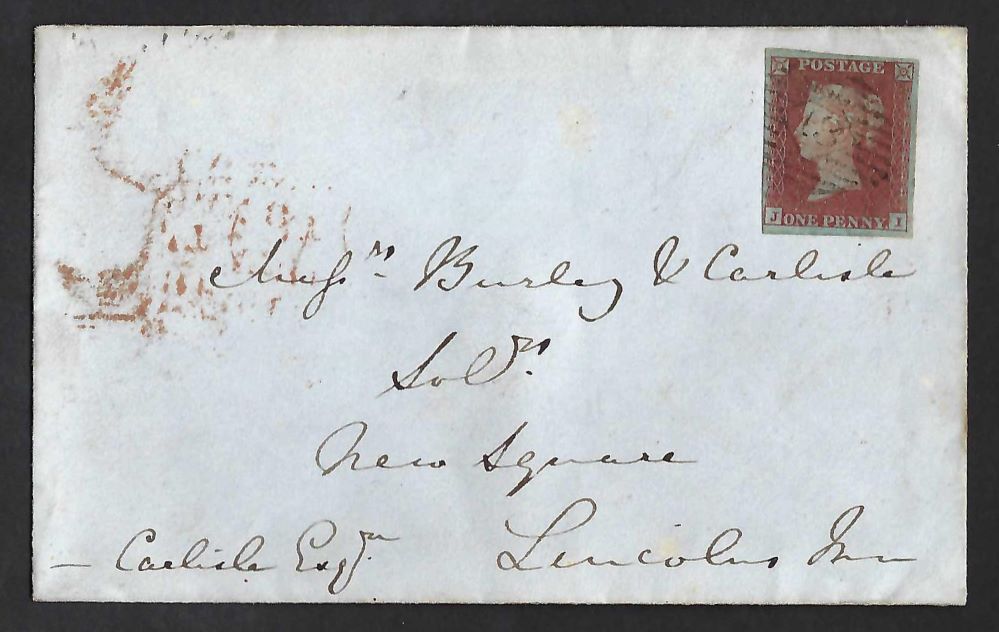 POSTAGE
J ONE PENNY. I
Messrs Burley & Carlisle
Solrs.
New Square
Lincolns Inn
— Carlisle Esqr.